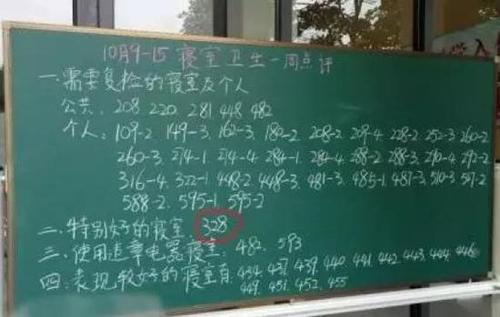 10月9-15 寝室卫生一周点评
一.需要复检的寝室及个人
公共: 208 220. 281 448 482
个人: 109-2. 149-3. 162-3. 180-2. 208-2. 209-4. 228-2. 252-3. 260-2
260-3. 274-1. 274-4. 284-1. 284-4. 288-2. 288-3. 290-4. 292-2
316-4. 322-1. 448-2. 448-3. 481-3. 485-1. 487-3. 510-3. 517-2
588-2. 595-1. 595-2
二.特别好的寝室: 328
三.使用违章电器寝室: 482. 593
四:表现较好的寝室有: 434. 437. 439. 440. 441. 442. 443. 444. 446
449. 451. 452. 455